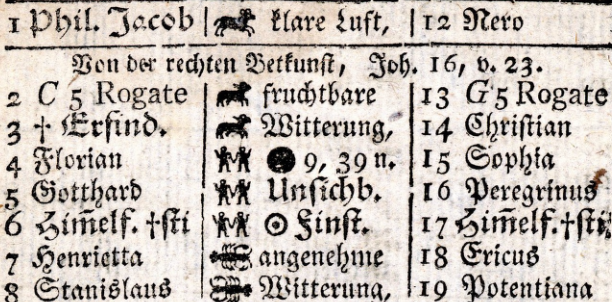 1 Phil. Jacob klare Luft, 12 Nero
Von der rechten Betkunst, Joh. 16, v. 23.
2 C 5 Rogate fruchtbare 13 G 5 Rogate
3 † Erfind. Witterung, 14 Christian
4 Florian 9, 39 n. 15 Sophia
5 Gotthard Unsichb. 16 Peregrinus
6 Him̅elf. †sti ☉ Finst. 17 Him̅elf. †sti,
7 Henrietta angenehme 18 Ericus
8 Stanislaus Witterung, 19 Potentiana